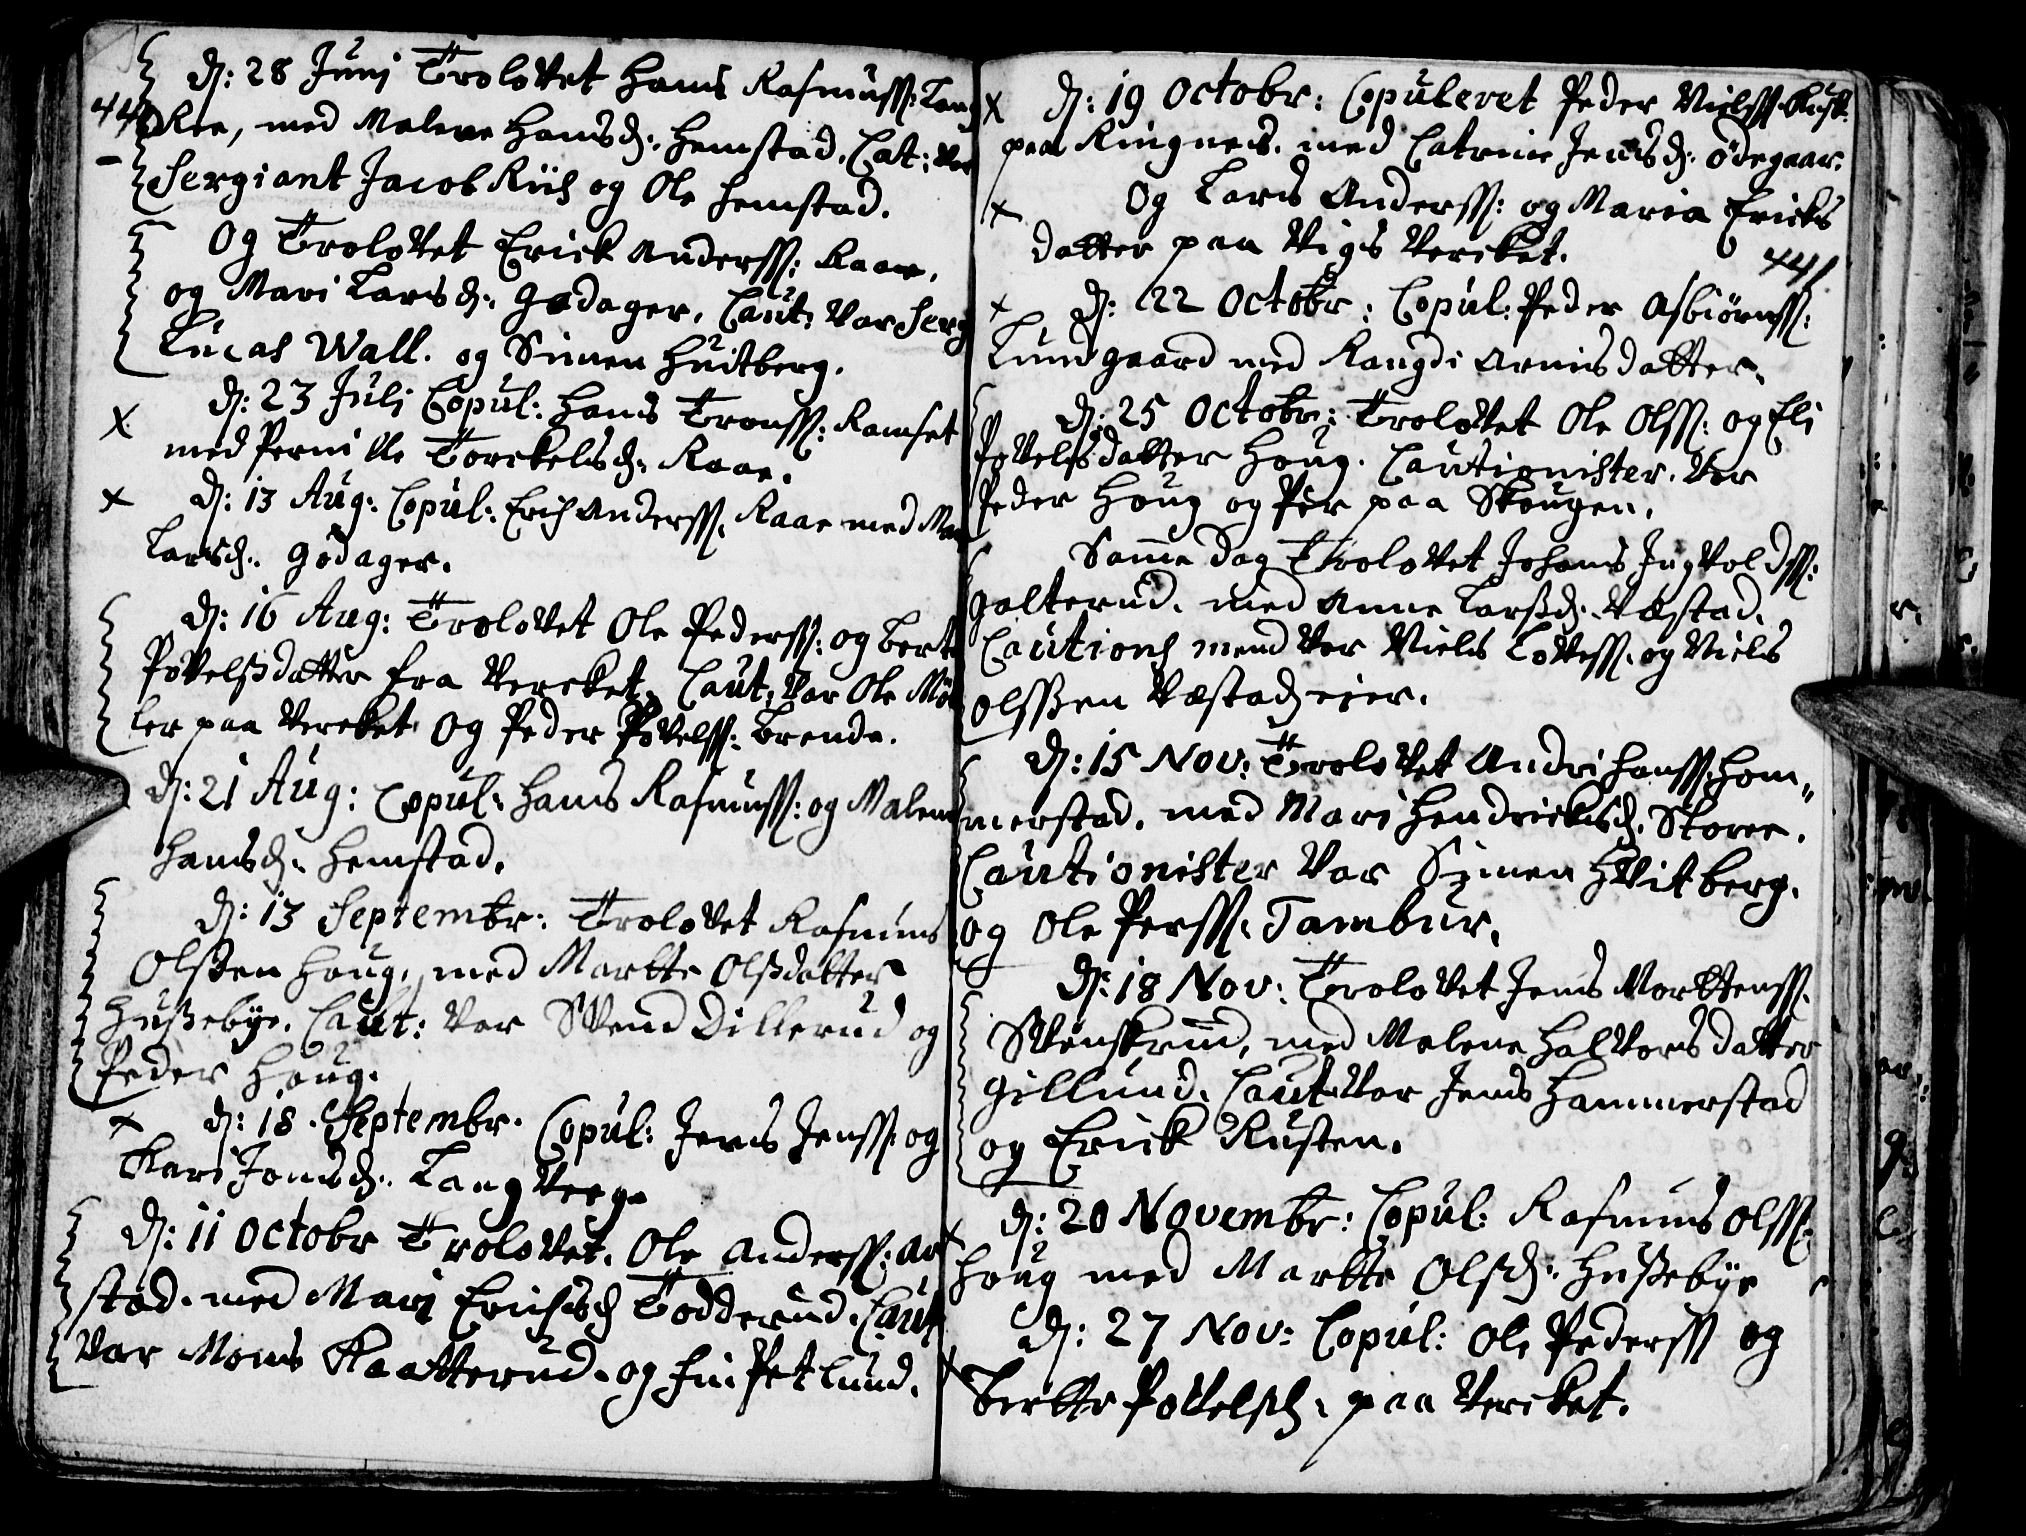 44
d: 28 Junj Trolovet Hans Rasmuss: Lang
Ree, med Malene Hansd: Hemstad. Cat: var
Sergiant Jacob Riis og Ole Hemstad.
Og Trolovet Erick Anderss: Raae,
og Mari Larsd: Gødager, Caut: var Serg
Lucas Wall. og Simen Huitberg.
d: 23 Julj Copul: Hans Tronss: Ramset
med Pernille Torckelsd: Raae.
d: 13 Aug: Copul: Erich Anderss: Raae med Mari
Larsd: Gødager.
d: 16 Aug: Trolovet Ole Pederss: og Berte
Povelsdatter fra Vercket, Caut: var Ole Møl
ler paa Vercket Og Peder Povelss: Brenda.
d: 21 Aug: Copul: Hans Rasmuss: og Malene
Hansd: Hemstad.
d: 13 Septembr: Trolovet Rasmus
Olssen Houg, med Martte Olsdatter
Hussebye. Caut: var Svend Dillerud og
Peder Houg.
d: 18. Septembr. Copul: Jens Jenss: og
Kari Jonsd: Langverg.
d: 11 Octobr Trolovet. Ole Anderss: Ar
stad. med Mari Erichsd Todderud. Caut
var Mons Kaatterud. og Petlund.
d: 19 Octobr: Copuleret Peder Nielss.
paa Ringnes. med Catrine Jensd: Ødegaar:
Og Lars Anderss: og Maria Ericks
datter paa Vigs Vercket.
441
d: 22 Octobr: Copul: Peder Asbiørnss:
Lundgaard med Rangdi Arnisdatter.
d: 25 Octobr: Trolovet Ole Olss: og Eli
Povelsdatter Houg. Cautionister. var
Peder Houg og Per paa Skougen.
Same dag Trolovet Johans Ingvoldss:
Galterud. med Anne Larsd: Væstad.
Cautions mend var Niels Tovess. og Niels
Olssen Væstad ejer.
d: 15 Nov: Trolovet Andri Hanss: Hom„
merstad. med Mari Hendricksd. Storee.
Cautionister var Simen Hvitberg.
og Ole Perss. Tambur.
d: 18 Nov: Trolovet Jens Morttenss.
Svenskrud, med Malene Halvorsdatter
Gillund. Caut: var Jens Hammerstad
og Erick Rusten.
d: 20 Novembr: Copul: Rasmus Olss:
Houg med Martte Olsd: Hussebye
d: 27 Nov: Copul: Ole Pederss og
Birtte Povelsd: paa Vercket.